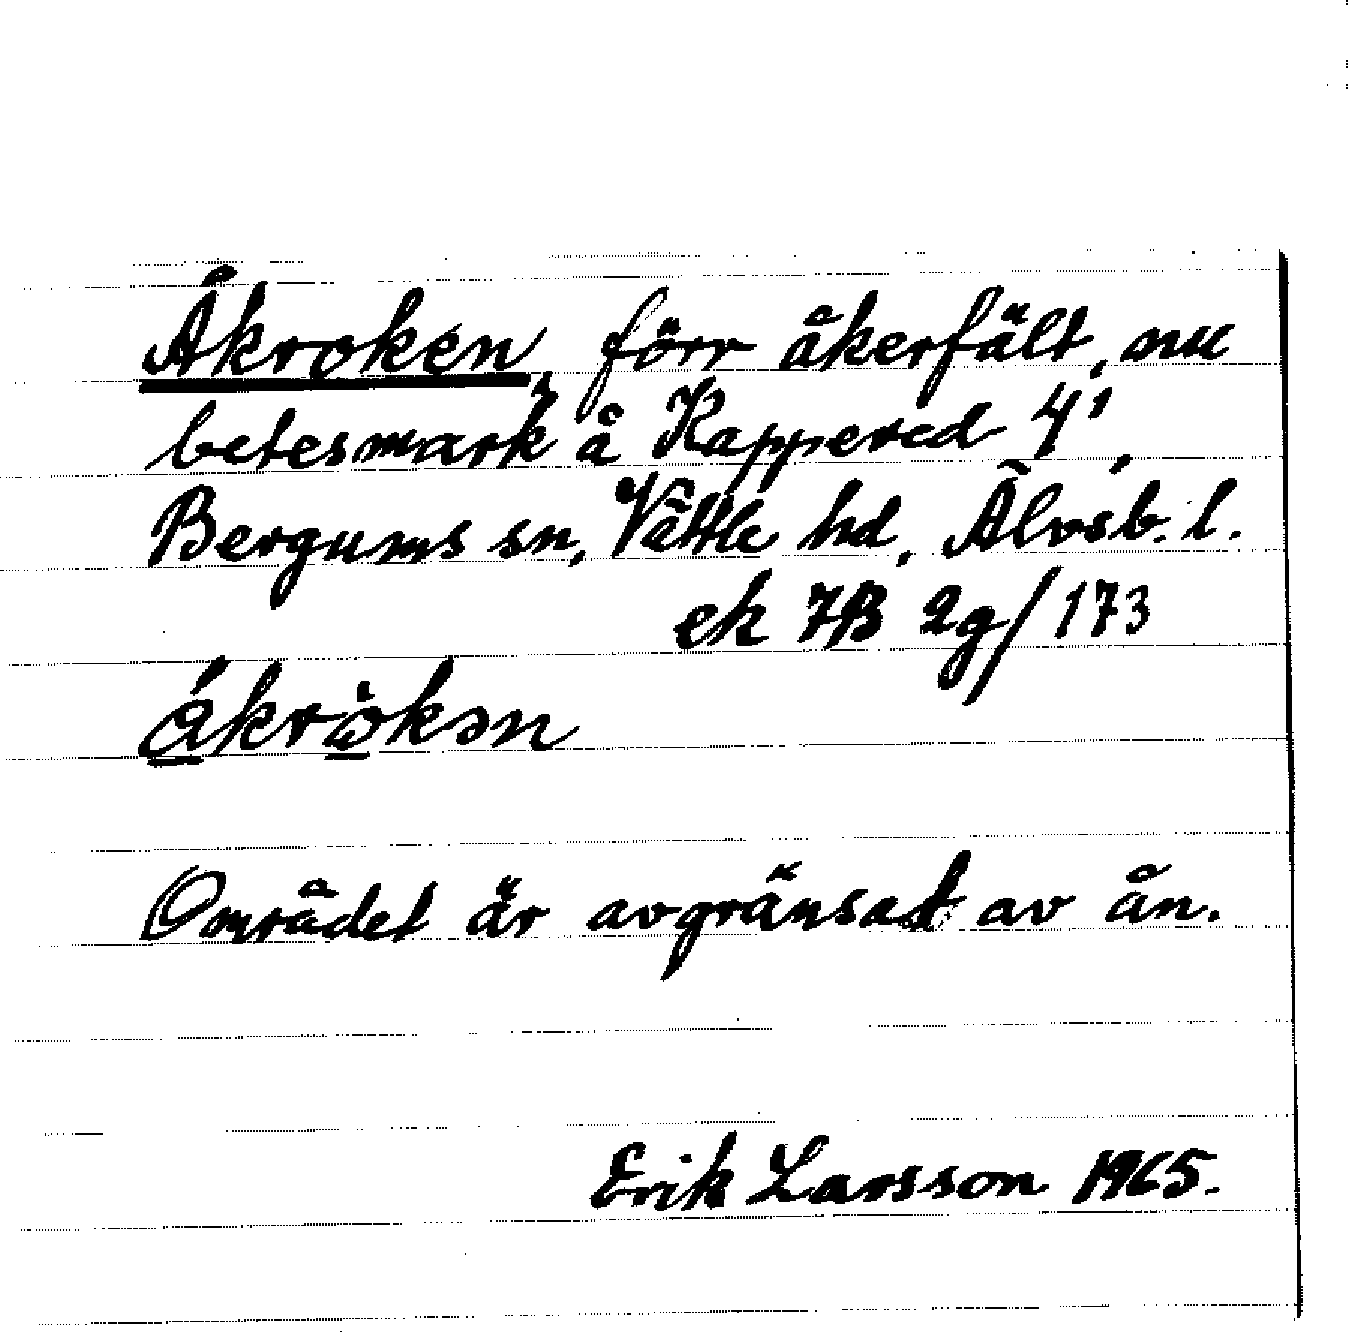 Åkroken, förr åkerfält, nu
betesmark å Kappered 4¹,
Bergums sn, Vättle hd, Älvsb. l.
ek 7B 2g/173
åkròkən
Området är avgränsat av ån.
Erik Larsson 1965.